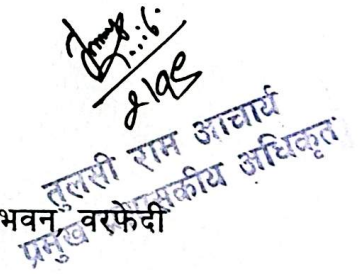 तुलसी राम आचार्य
प्रमुख प्रशासकीय अधिकृत
भवन, वरफेदी